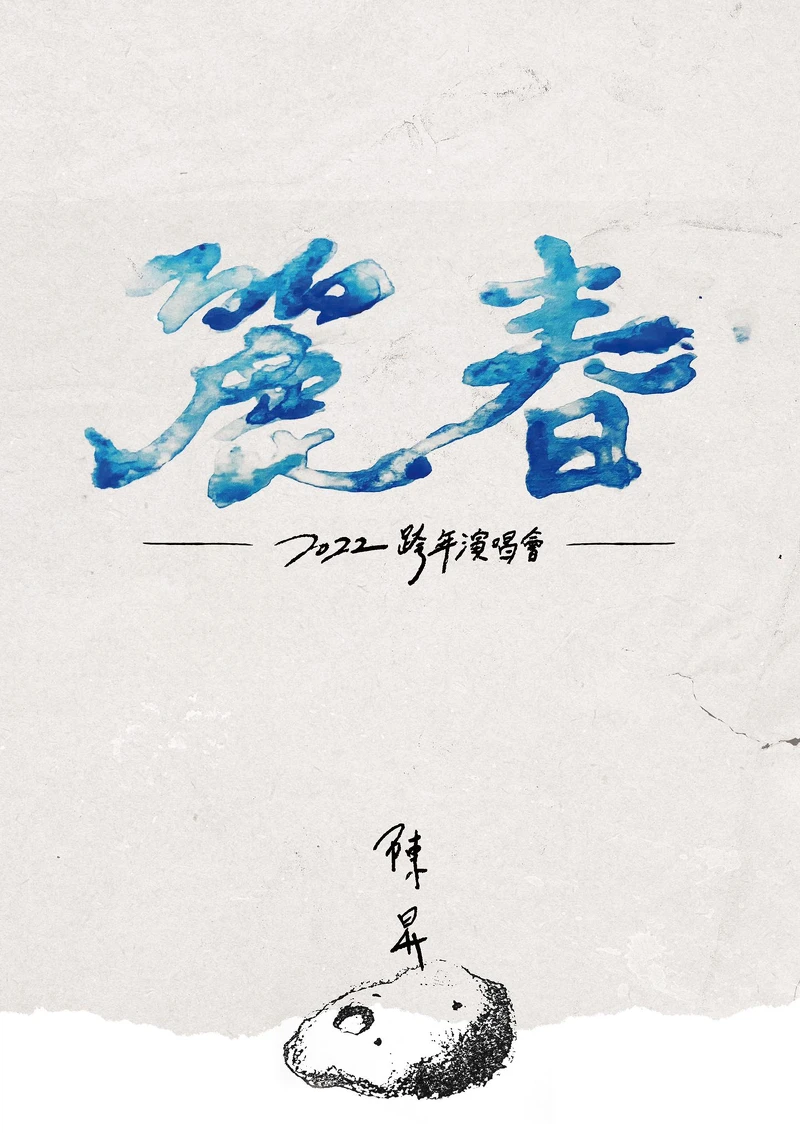 麗春
2022跨年演唱會
陳
昇